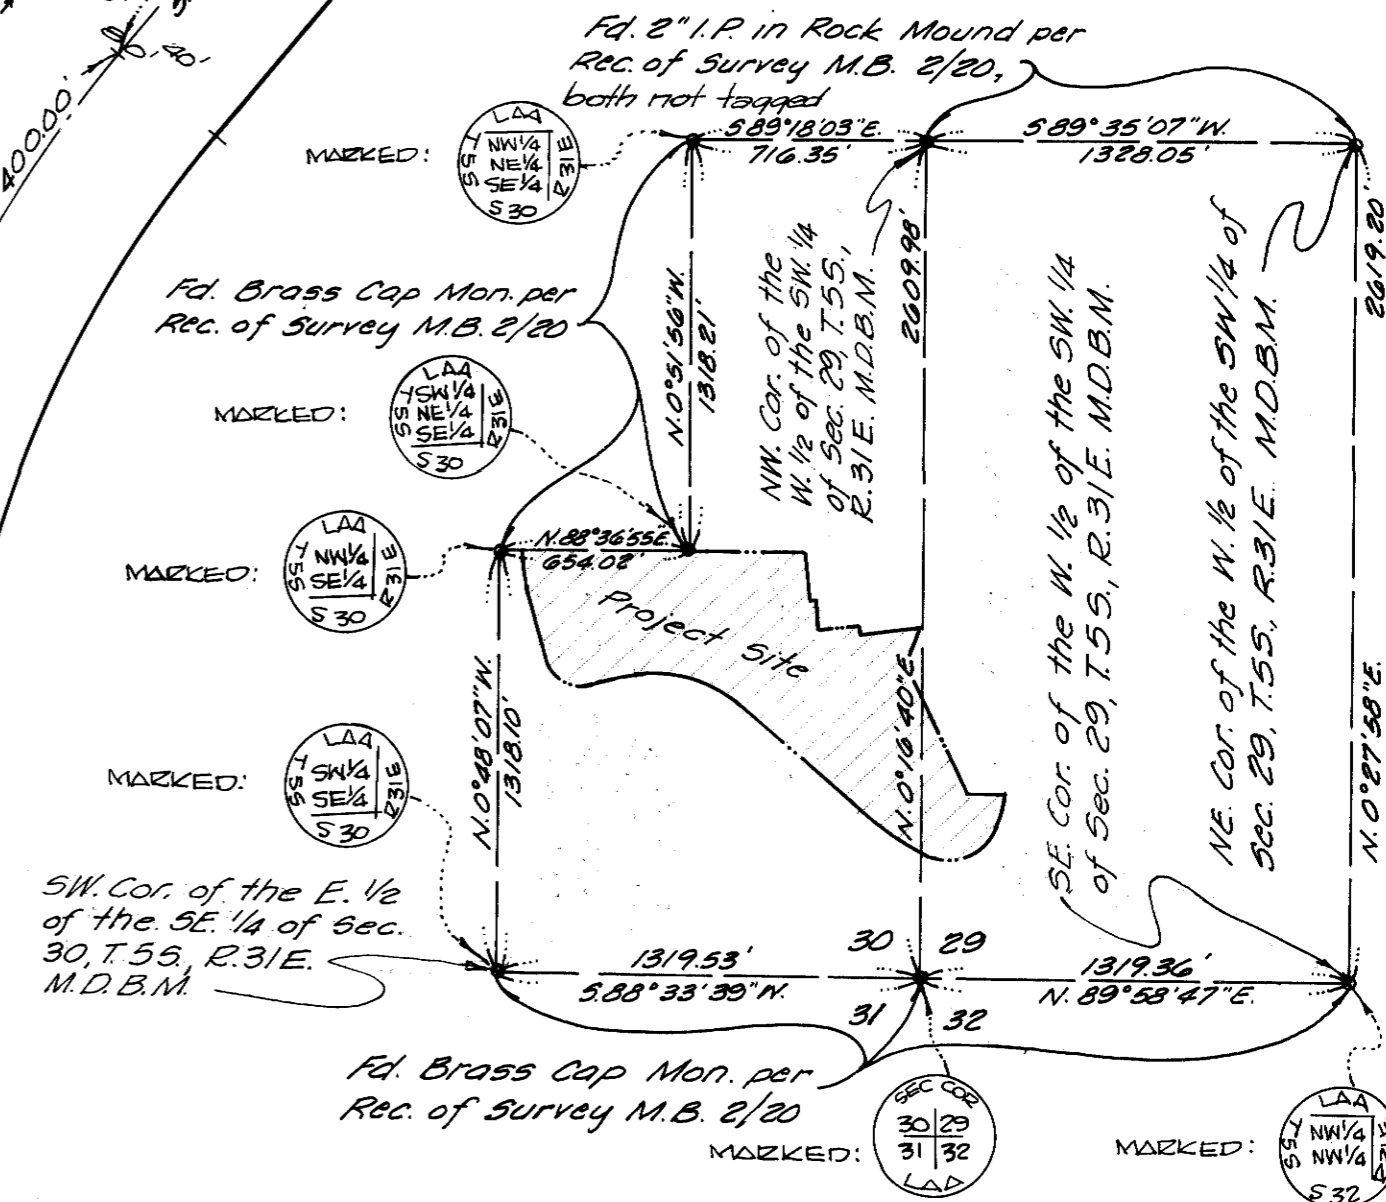 400.00'
Fd. 2" I.P. in Rock Mound per
Rec. of Survey M.B. 2/20,
both not tagged
MARKED:
LAA
T5S
NW 1/4
NE 1/4
SE 1/4
R31E
S30
S89°18'03"E.
716.35'
S89°35'07"W.
1328.05'
Fd. Brass Cap Mon. per
Rec. of Survey M.B. 2/20
N.0°51'56"W.
1318.21'
NW. Cor. of the
W. 1/2 of the SW. 1/4
of Sec. 29, T.5S.,
R.31E. M.D.B.M.
2609.98'
N.0°16'40"E.
2619.20'
N.0°27'58"E.
MARKED:
LAA
T5S
SW 1/4
NE 1/4
SE 1/4
R31E
S30
MARKED:
LAA
T5S
NW 1/4
SE 1/4
R31E
S30
N.88°36'55"E.
654.02'
Project Site
SE. Cor. of the W. 1/2 of the SW. 1/4
of Sec. 29, T.5S., R.31E. M.D.B.M.
NE. Cor. of the W. 1/2 of the SW 1/4 of
Sec. 29, T.5S., R.31E. M.D.B.M.
N.0°48'07"W.
1318.10'
MARKED:
LAA
T5S
SW 1/4
SE 1/4
R31E
S30
SW. Cor. of the E. 1/2
of the SE. 1/4 of Sec.
30, T.5S., R.31E.
M.D.B.M.
1319.53'
S.88°33'39"W.
30 29
31 32
1319.36'
N.89°58'47"E.
Fd. Brass Cap Mon. per
Rec. of Survey M.B. 2/20
MARKED:
SEC COR
30 29
31 32
LAA
MARKED:
LAA
T5S
NW 1/4
NW 1/4
S32